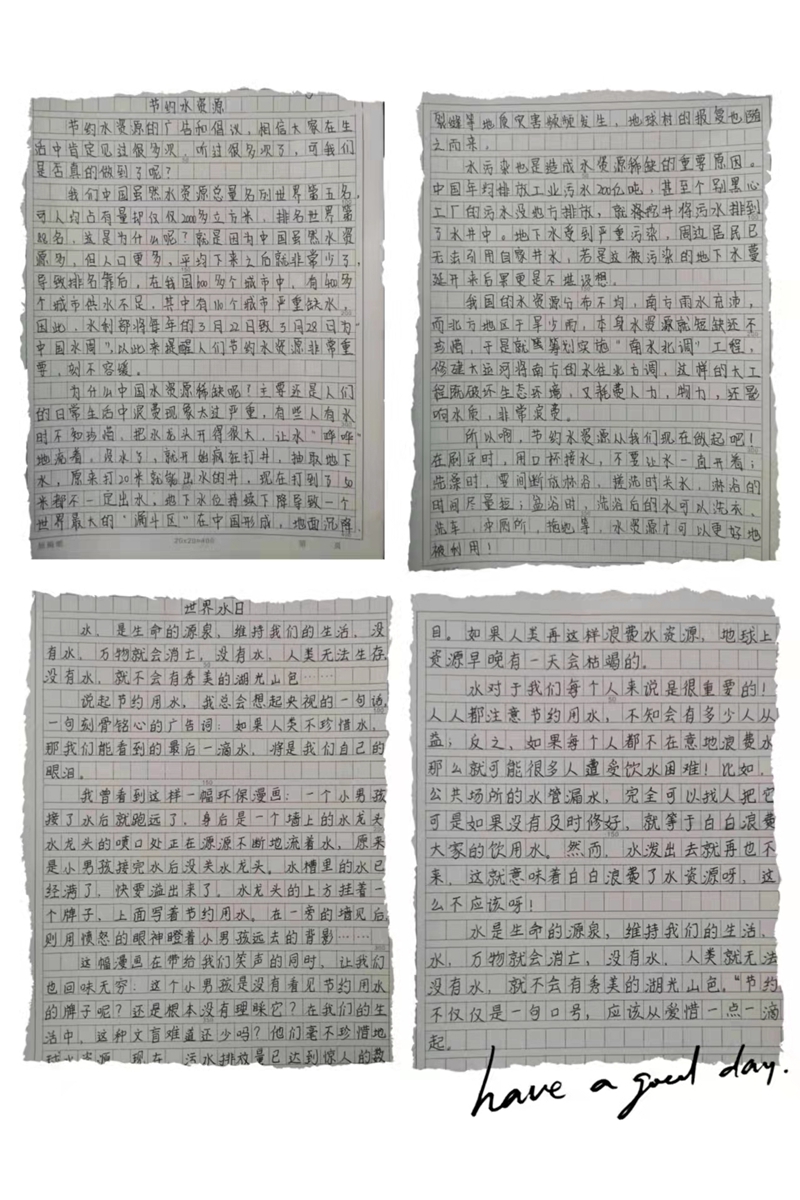 节约水资源
节约水资源的广告和倡议，相信大家在生
活中肯定见过很多次，听过很多次了，可我们
是否真的做到了呢？
我们中国虽然水资源总量名列世界第五名，
可人均占有量却仅仅2000多立方米，排名世界第
起名，这是为什么呢？就是因为中国虽然水资
源多，但人口更多，平均下来之后就非常少了，
导致排名靠后，在我国600多个城市中，有400多
个城市供水不足，其中有110个城市严重缺水。
因此，水利部将每年的3月22日致3月28日为
“中国水周”，以此来提醒人们节约水资源非常重
要，刻不容缓。
为什么中国水资源稀缺呢？主要还是人们
的日常生活中浪费现象太过严重，有些人有水
时不知珍惜，把水龙头开得很大，让水“哗哗”
地流着，没水了，就开始疯狂打井，抽取地下
水，原来打20米就能出水的井，现在打到了50
米都不一定出水。地下水位持续下降导致一个
世界最大的“漏斗区”在中国形成，地面沉降、
20x20=400
裂缝等地质灾害频频发生，地球村的报复也随
之而来。
水污染也是造成水资源稀缺的重要原因。
中国年均排放工业污水200亿吨，甚至个别黑心
工厂的污水没地方排放，就将挖井将污水排到
了水井中。地下水受到严重污染，周边居民已
无法引用自家井水，若是这被污染的地下水蔓
延开来后果更是不堪设想。
我国的水资源分布不均，南方雨水充沛，
而北方地区干旱少雨，本身水资源就短缺还不
珍惜，于是就筹划实施“南水北调”工程，
修建大运河将南方的水往北方调，这样的大工
程既破坏生态环境，又耗费人力，物力，还影
响水质，非常浪费。
所以啊，节约水资源从我们现在做起吧！
在刷牙时，用口杯接水，不要让水一直开着；
洗澡时，要间断放淋浴，搓洗时关水，淋浴的
时间尽量短；盆浴时，洗浴后的水可以洗衣、
洗车、冲厕所，拖地等，水资源才可以更好地
被利用！
世界水日
水，是生命的源泉，维持我们的生活，没
有水，万物就会消亡，没有水，人类无法生存，
没有水，就不会有秀美的湖光山色……
说起节约用水，我总会想起央视的一句话，
一句刻骨铭心的广告词：如果人类不珍惜水，
那我们能看到的最后一滴水，将是我们自己的
眼泪。
我曾看到这样一幅环保漫画：一个小男孩
接了水后就跑远了，身后是一个墙上的水龙头
水龙头的喷口处正在源源不断地流着水，原来
是小男孩接完水后没关水龙头。水槽里的水已
经满了，快要溢出来了。水龙头的上方挂着一
个牌子，上面写着节约用水。在一旁的墙见后
则用愤怒的眼神瞪着小男孩远去的背影……
这幅漫画在带给我们笑声的同时，让我们
也回味无穷：这个小男孩是没有看见节约用水
的牌子呢？还是根本没有理睬它？在我们的生
活中，这种文盲难道还少吗？他们毫不珍惜地
球水资源，现在，污水排放量已达到惊人的数
目。如果人类再这样浪费水资源，地球上
资源早晚有一天会枯竭的。
水对于我们每个人来说是很重要的！
人人都注意节约用水，不知会有多少人从
益；反之，如果每个人都不在意地浪费水
那么就可能很多人遭受饮水困难！比如，
公共场所的水管漏水，完全可以找人把它
可是如果没有及时修好，就等于白白浪费
大家的饮用水。然而，水泼出去就再也不
来，这就意味着白白浪费了水资源呀，这
么不应该呀！
水是生命的源泉，维持我们的生活，
水，万物就会消亡，没有水，人类就无法
没有水，就不会有秀美的湖光山色。“节约
不仅仅是一句口号，应该从爱惜一点一滴
起。
have a good day.